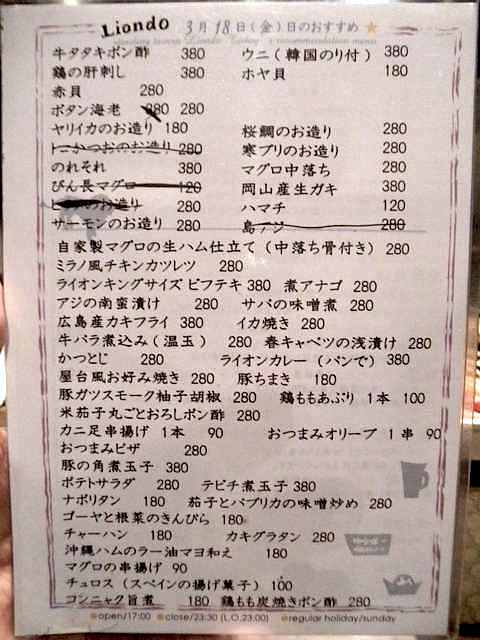 Liondo 3月18日(金)日のおすすめ
牛タタキポン酢 380 ウニ(韓国のり付) 380
鶏の肝刺し 380 ホヤ貝 180
赤貝 280
ボタン海老 280
ヤリイカのお造り 180 桜鯛のお造り 280
かつおのお造り 280 寒ブリのお造り 280
のれそれ 380 マグロ中落ち 280
びん長マグロ 120 岡山産生ガキ 380
のお造り 280 ハマチ 120
サーモンのお造り 280 島アジ 280
自家製マグロの生ハム仕立て(中落ち骨付き) 280
ミラノ風チキンカツレツ 280
ライオンキングサイズ ビフテキ 380 煮アナゴ 280
アジの南蛮漬け 280 サバの味噌煮 280
広島産カキフライ 380 イカ焼き 280
牛バラ煮込み(温玉) 280 春キャベツの浅漬け 280
かつとじ 280 ライオンカレー(パンで) 380
屋台風お好み焼き 280 豚ちまき 180
豚ガツスモーク柚子胡椒 280 鶏ももあぶり 1本 100
米茄子丸ごとおろしポン酢 280
カニ足串揚げ 1本 90 おつまみオリーブ 1串 90
おつまみピザ 280
豚の角煮玉子 380
ポテトサラダ 280 テビチ煮玉子 380
ナポリタン 180 茄子とパプリカの味噌炒め 280
ゴーヤと根菜のきんぴら 180
チャーハン 180 カキグラタン 280
沖縄ハムのラー油マヨ和え 180
マグロの串揚げ 90
チュロス(スペインの揚げ菓子) 100
コンニャク旨煮 180 鶏もも炭焼きポン酢 280
open/17:00 close/23:30 (L.O,23:00) regular holiday/sunday